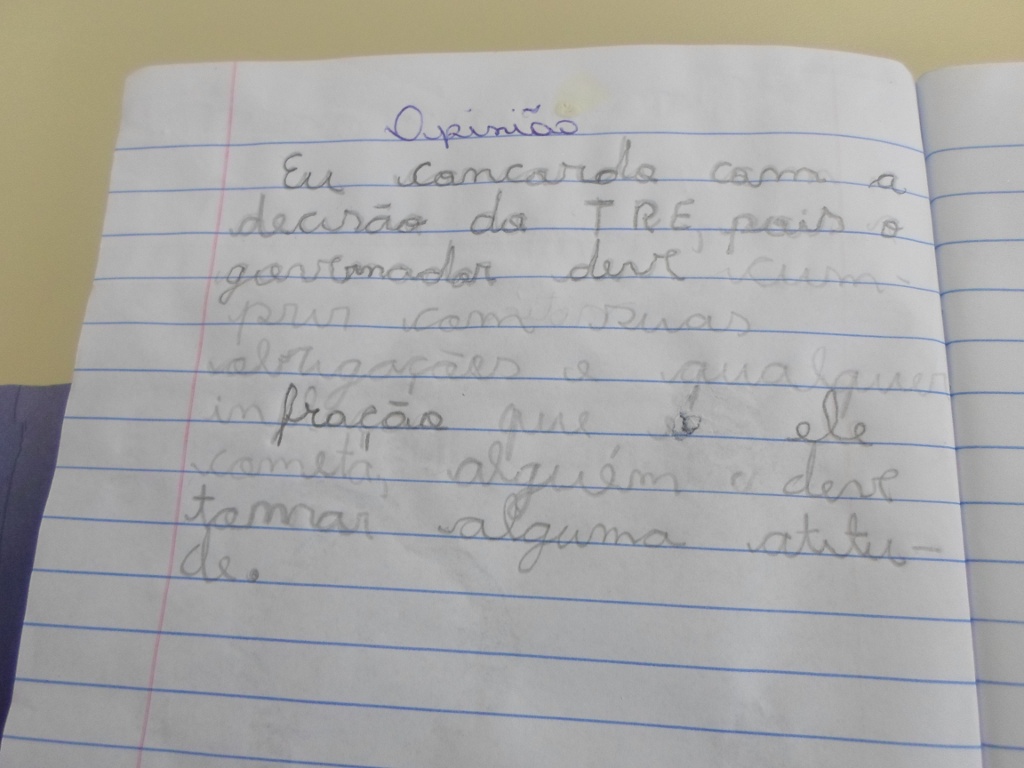 Opinião
Eu concordo com a
decisão do TRE, pois o
governador deve cum-
prir com suas
obrigações e qualquer
infração que ele
cometa, alguém deve
tomar alguma atitu-
de.